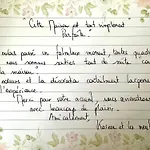 "Cette Maison est tout simplement
Parfaite"
passé un fabuleux moment, toutes quatre
nous nous sommes senties tout de suite comme
la maison"
odeurs et la décoration contribuent largement
l'expérience.
Merci pour votre accueil, nous reviendrons
avec beaucoup de plaisir.
Amicalement,
Karine et les